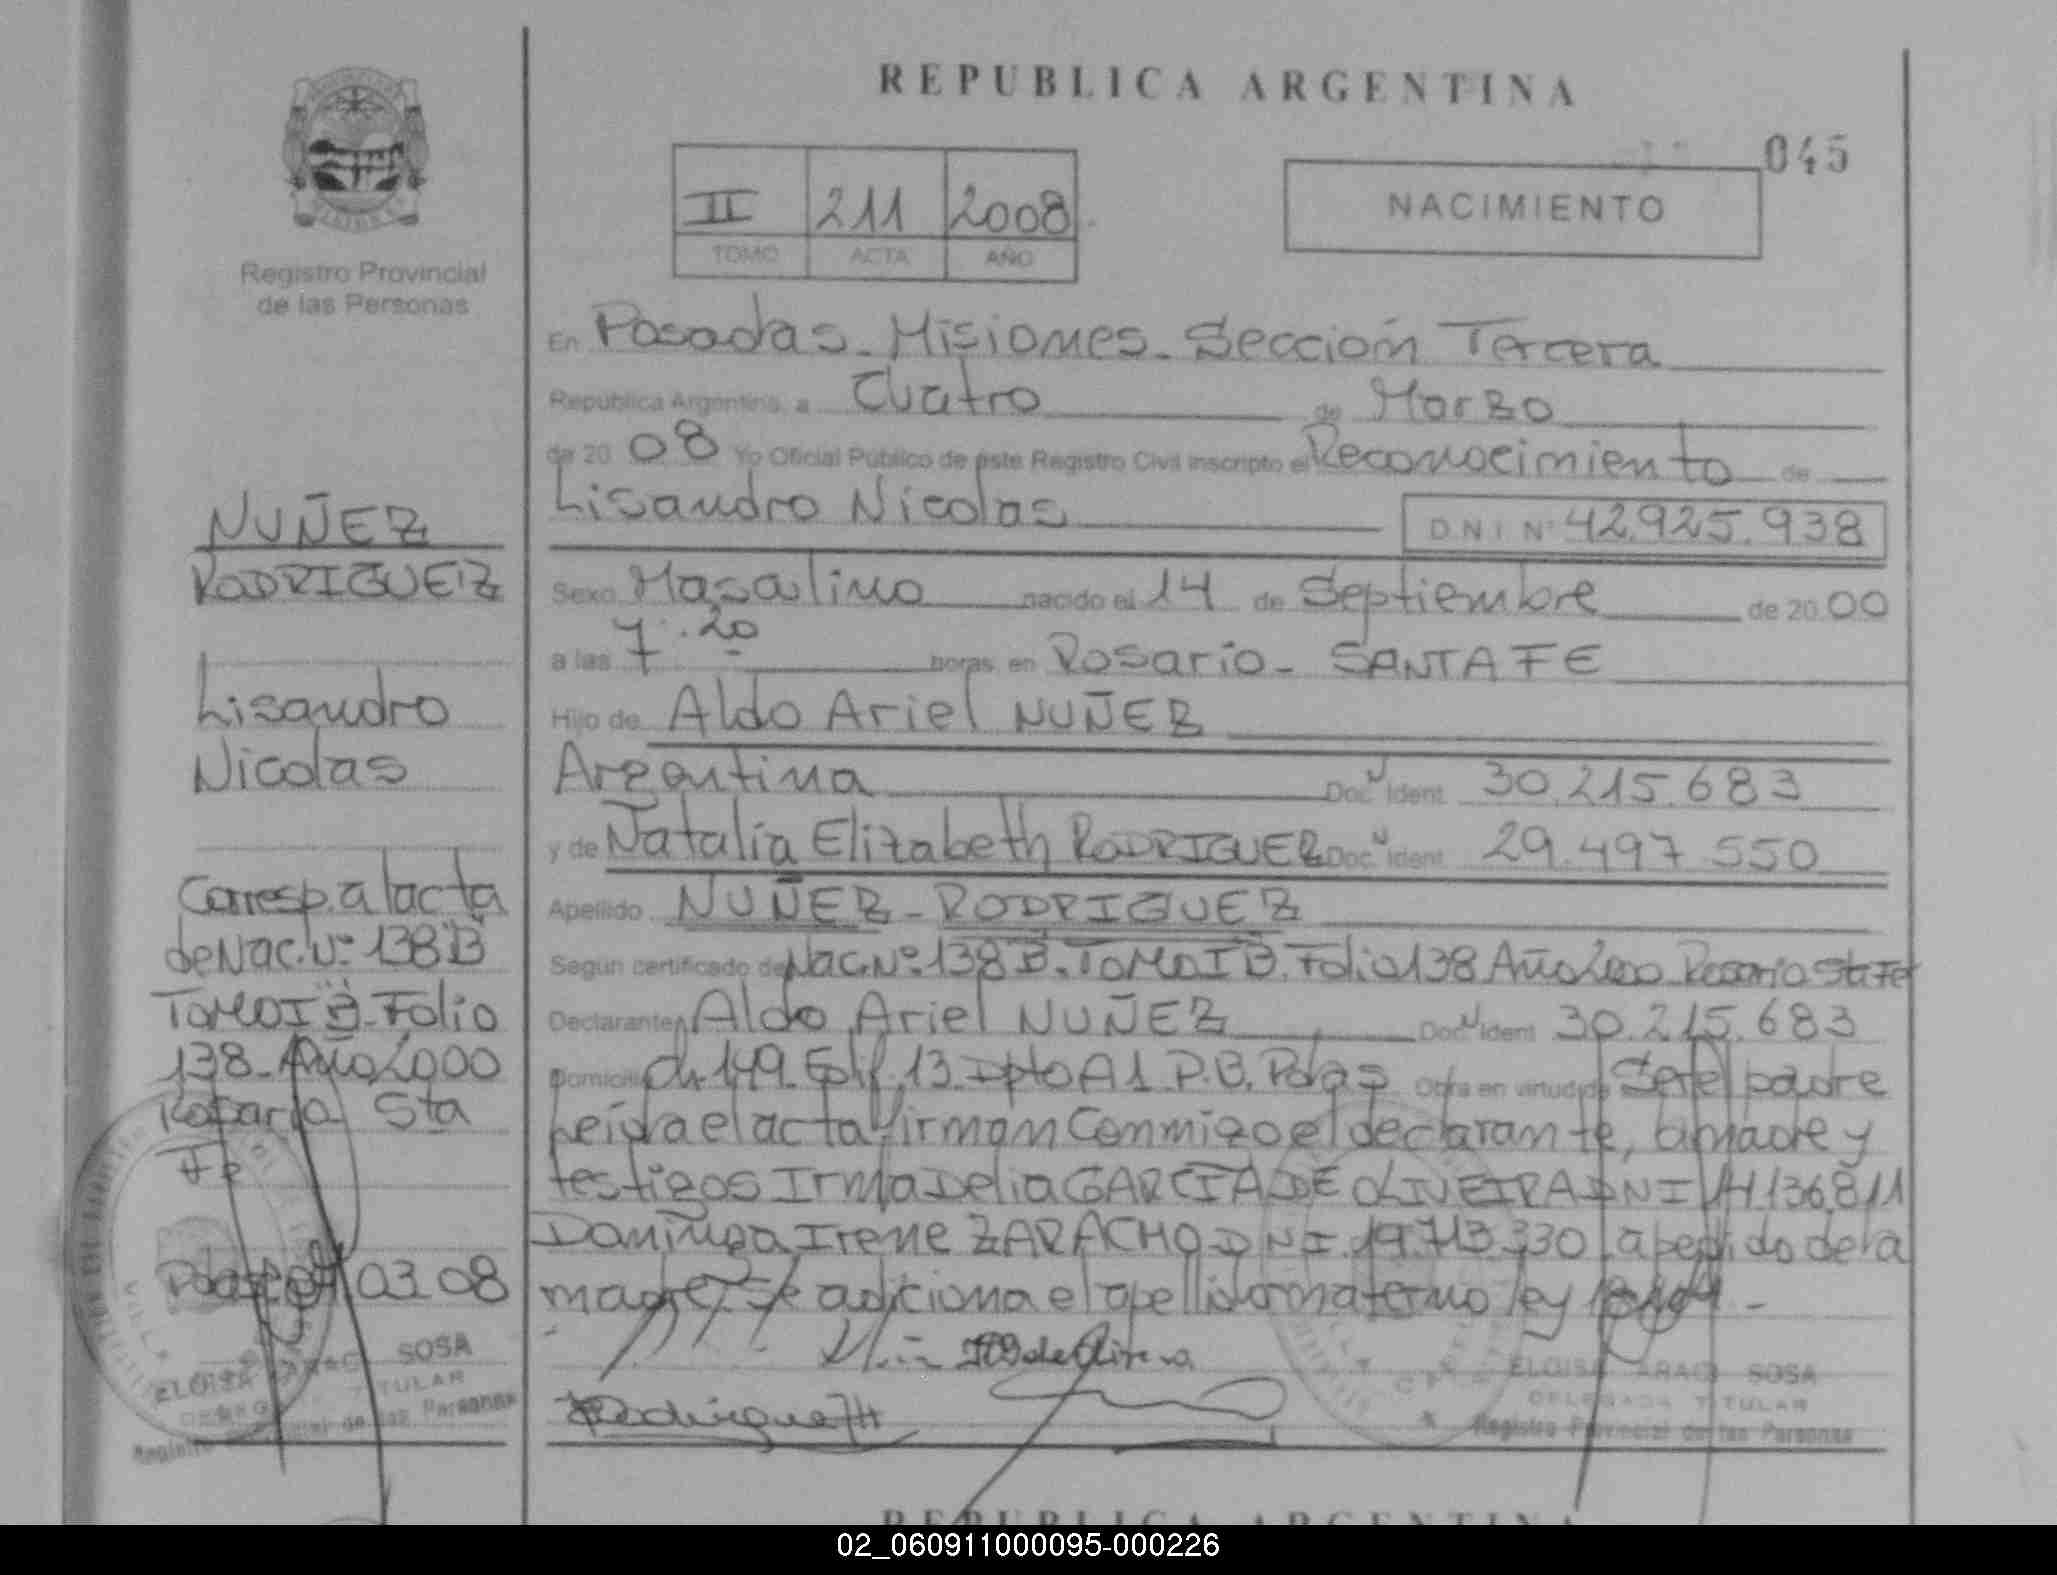 REPUBLICA ARGENTINA
045
II 211 2008
TOMO ACTA AÑO
NACIMIENTO
Registro Provincial
de las Personas
En Posadas - Misiones - Sección Tercera
Republica Argentina, a Cuatro de Marzo
de 20 08 Yo Oficial Público de este Registro Civil inscripto el Reconocimiento de
Lisandro Nicolas D.N.I. N° 42.925.938
Sexo Masculino nacido el 14 de Septiembre de 20 00
a las 7:20 horas, en Rosario - SANTA FE
Hijo de Aldo Ariel NUÑEZ
Argentina Doc. Ident. 30.215.683
y de Natalia Elizabeth RODRIGUEZ Doc. Ident. 29.497.550
Apellido NUÑEZ - RODRIGUEZ
Según certificado de Nac. N° 138 B. TOMO I B. Folio 138 Año 2000 Rosario Sta Fe
Declarante Aldo Ariel NUÑEZ Doc. Ident. 30.215.683
Domicilio Ch 149 - Edif. 13 - Dpto A1 P.B. Pdas Obra en virtud de Ser el padre
Leída el acta firman Conmigo el declarante, la madre y
testigos Irma Delia GARCIA DE OLIVEIRA DNI 14.136.811
Dominga Irene ZARACHO DNI. 19.713.330 a pedido de la
madre, se adiciona el apellido materno ley
NUÑEZ
RODRIGUEZ
Lisandro
Nicolas
Corresp. a l acta
de Nac. N° 138 B
TOMO I B - Folio
138 - Año 2000
Rosario Sta
Fe
Pdas 04 03 08
ELOISA ARACI SOSA
TITULAR
Registro Provincial de las Personas
ELOISA ARACI SOSA
DELEGADA TITULAR
Registro Provincial de las Personas
REPUBLICA ARGENTINA
02_060911000095-000226